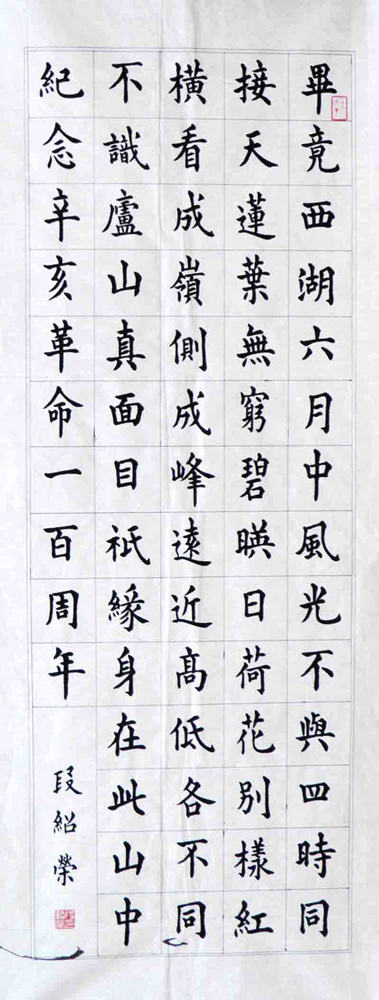 畢竟西湖六月中風光不與四時同
接天蓮葉無窮碧暎日荷花別樣紅
橫看成嶺側成峰遠近髙低各不同
不識廬山真面目祇緣身在此山中
紀念辛亥革命一百周年
段紹榮